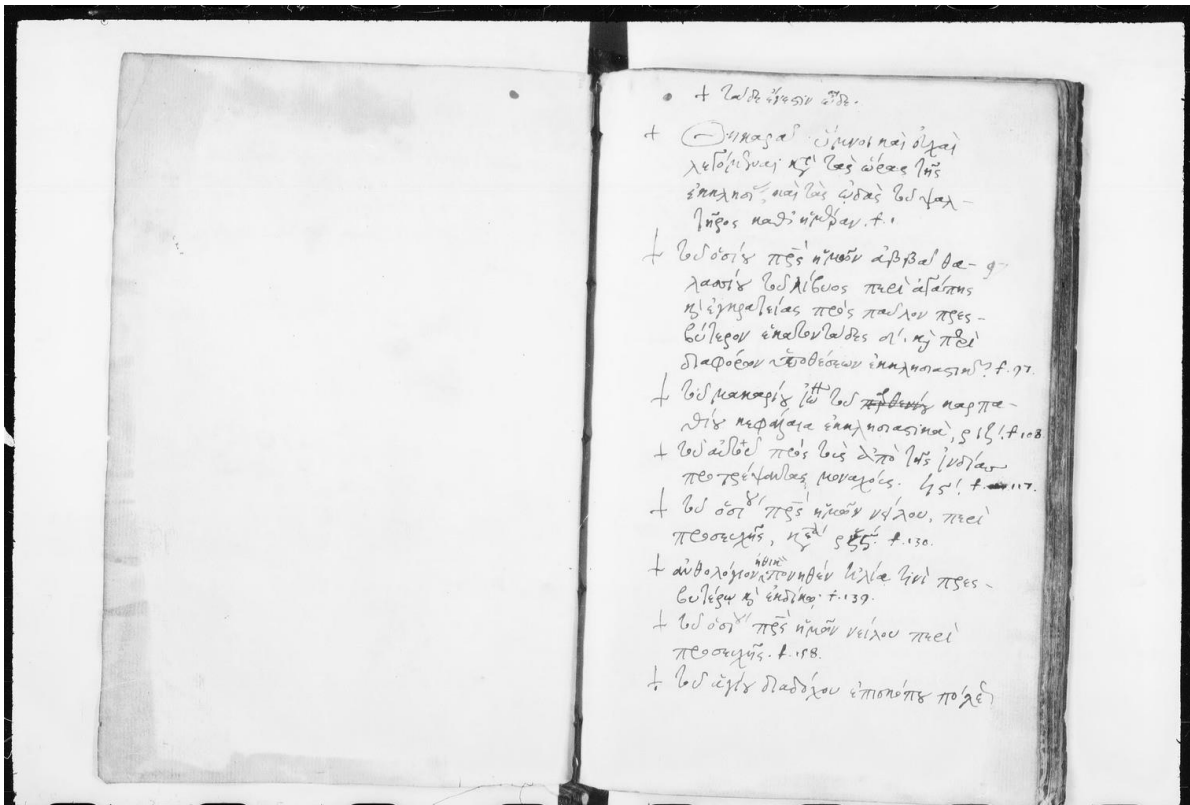 + τάδε ἔνεστιν ὧδε.
+ Θηκαρᾶ ὕμνοι καὶ εὐχαὶ
λεγόμεναι κατὰ τὰς ὥρας τῆς
ἐκκλησί καὶ τὰς ᾠδὰς τοῦ ψαλ-
τῆρος καθ' ἡμέραν. f. 1
+ τοῦ ὁσίου πρς ἡμῶν ἀββᾶ θα-
λασσίου τοῦ λίβυος περὶ ἀγάπης
κὶ ἐγκρατείας πρὸς παῦλον πρεσ-
βύτερον ἑκατοντάδες δ'. κὶ περὶ
διαφόρων ὑποθέσεων ἐκκλησιαστικ f. 97.
+ τοῦ μακαρίου ἰω τοῦ καρπα-
θίου κεφάλαια ἐκκλησιαστικὰ, ριζ'. f. 108.
+ τοῦ αὐτοῦ πρὸς τοὺς ἀπὸ τῆς ἰνδίας
προτρέψαντας μοναχούς. f. 117.
+ τοῦ ὁσί πρς ἡμῶν νείλου, περὶ
προσευχῆς, f. 130.
+ ἀνθολόγιον ἠθικ πονηθὲν ἠλίᾳ τινὶ πρεσ-
βυτέρῳ κὶ ἐκδίκῳ. f. 139.
+ τοῦ ὁσί πρς ἡμῶν νείλου περὶ
προσευχῆς. f. 158.
+ τοῦ ἁγίου διαδόχου ἐπισκόπου πόλε